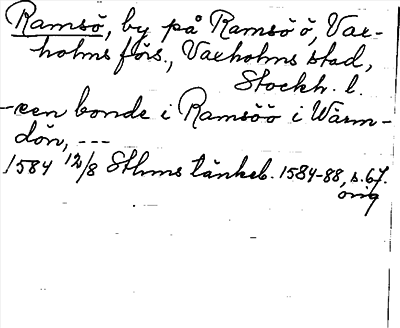 Ramsö, by på Ramsö ö, Vax-
holms förs., Vaxholms stad,
Stockh. l.
--- een bonde i Ramsöö i Wärm-
dön, ---
1584 12/8 Sthms tänkeb. 1584-88, s. 67.
orig